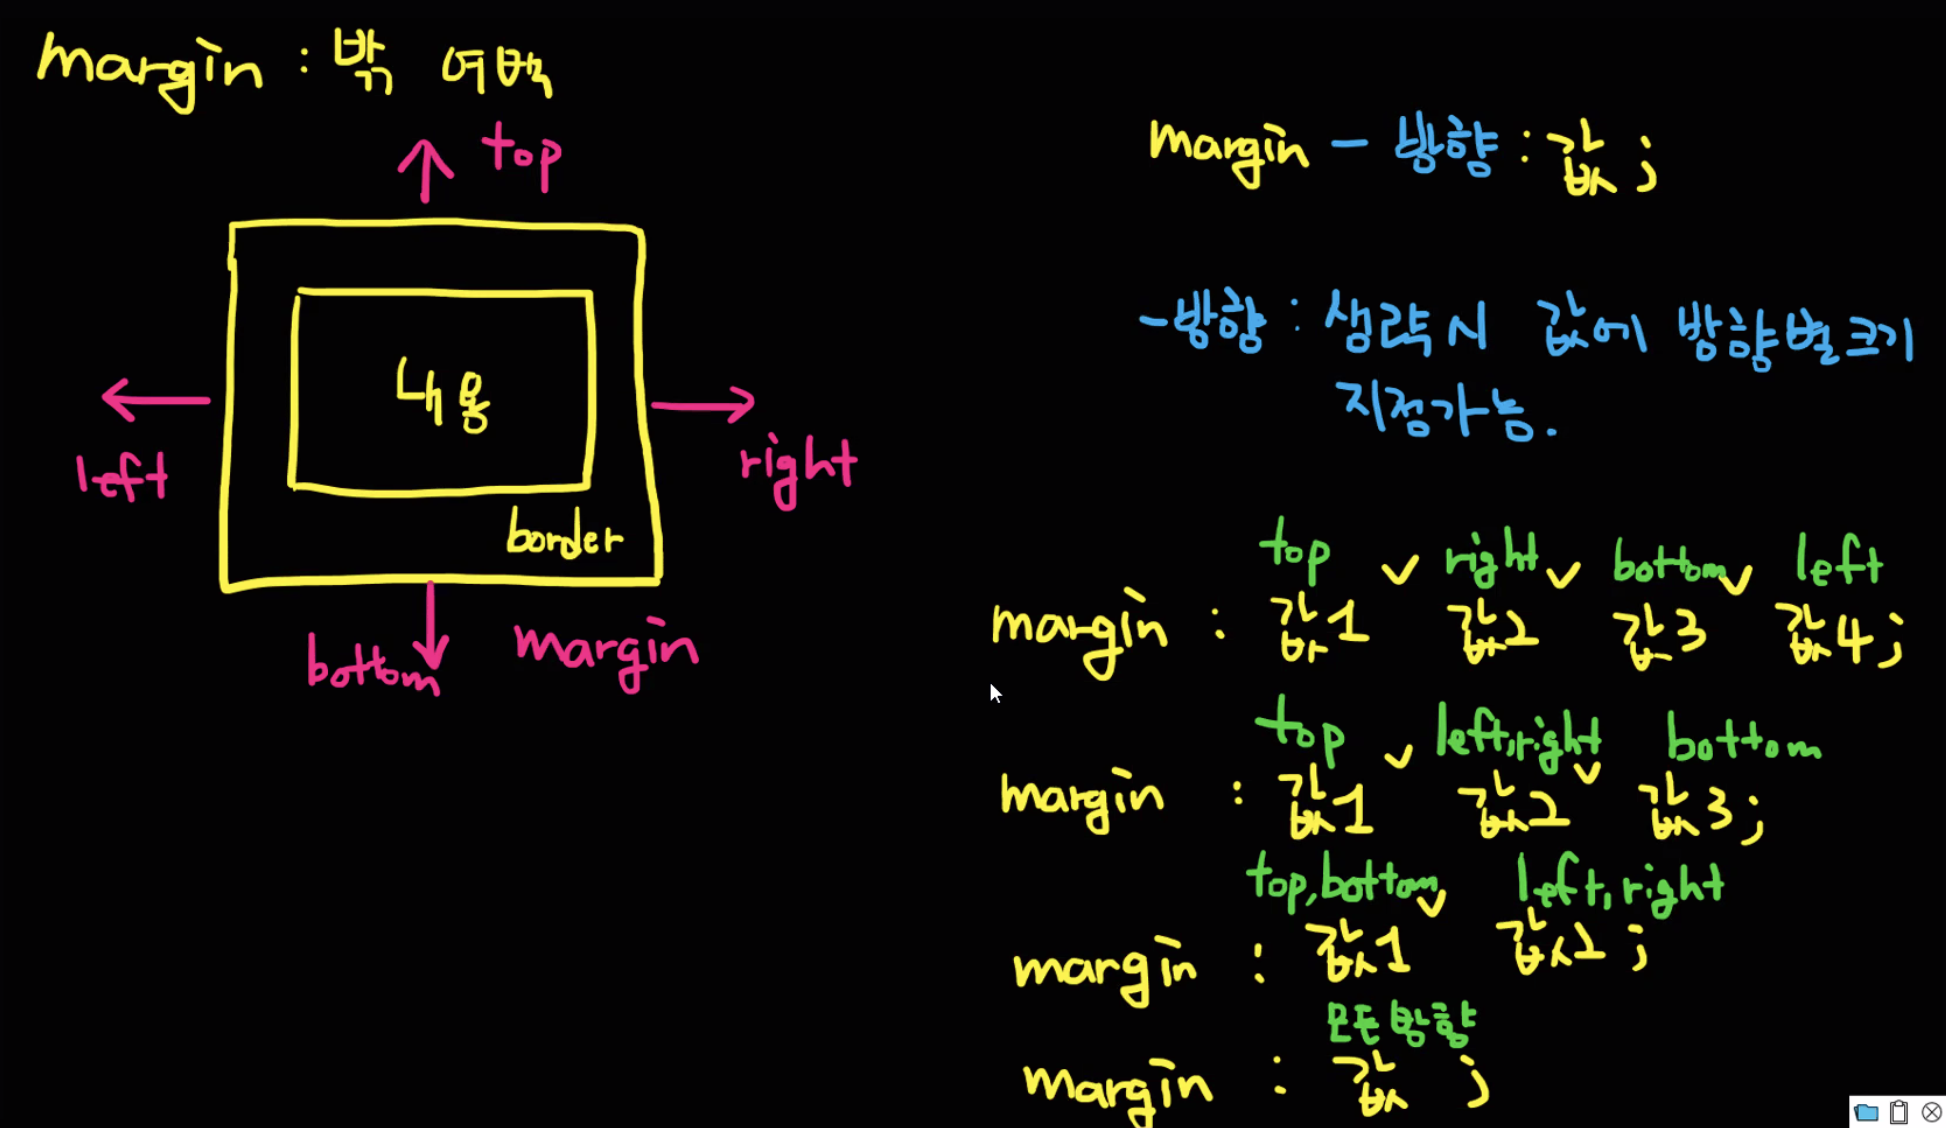 margin : 밖 여백
top
내용
left
right
border
bottom
margin
margin - 방향 : 값 ;
-방향 : 생략시 값에 방향별크기
지정가능.
top right bottom left
margin : 값1 값2 값3 값4 ;
top left,right bottom
margin : 값1 값2 값3 ;
top,bottom left,right
margin : 값1 값2 ;
모든방향
margin : 값 ;